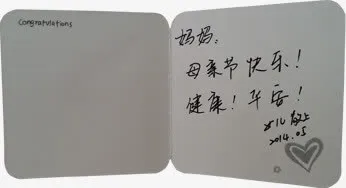 Congratulations
妈妈:
母亲节快乐!
健康!平安!
2014.05